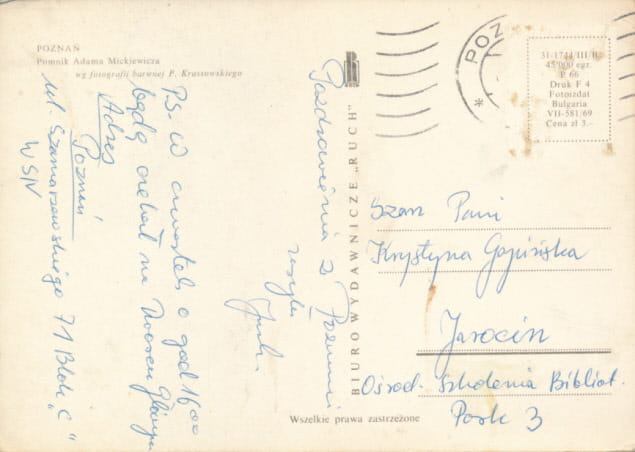 POZNAŃ
Pomnik Adama Mickiewicza
wg fotografii barwnej P. Krassowskiego
Pozdrowienia z Poznania
PS. W czwartek o god 16 00
będę czekał na
Adres
Poznań
ul. Szamarzewskiego 71 Blok „C"
WSN
BIURO WYDAWNICZE „RUCH"
Wszelkie prawa zastrzeżone
POZ
31-1744/III/R
45.000 egz.
P 66
Druk F 4
Fotoizdat
Bulgaria
VII-581/69
Cena zł 3.—
Szan Pani
Krystyna
Jarocin
Ośrod. Szkolenia Bibliot.
Park 3